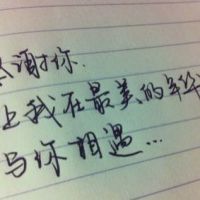 感谢你.
让我在最美的年华
与你相遇...